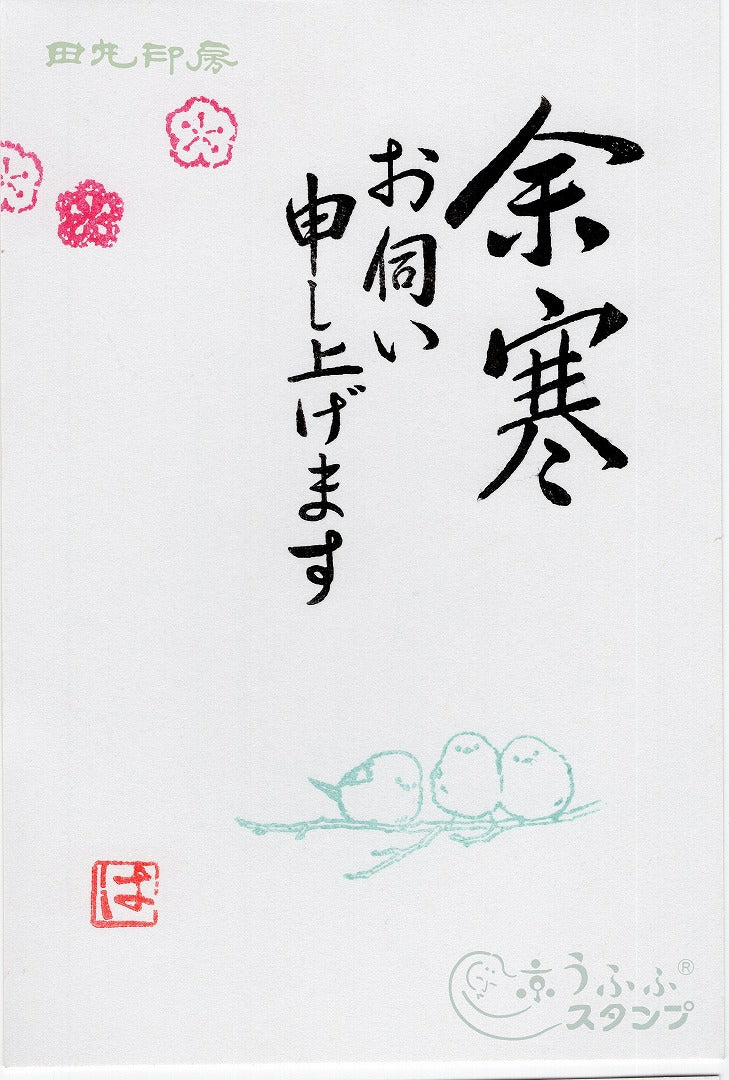 田丸印房
余寒
お伺い
申し上げます
ぱ
京うふふ®
スタンプ